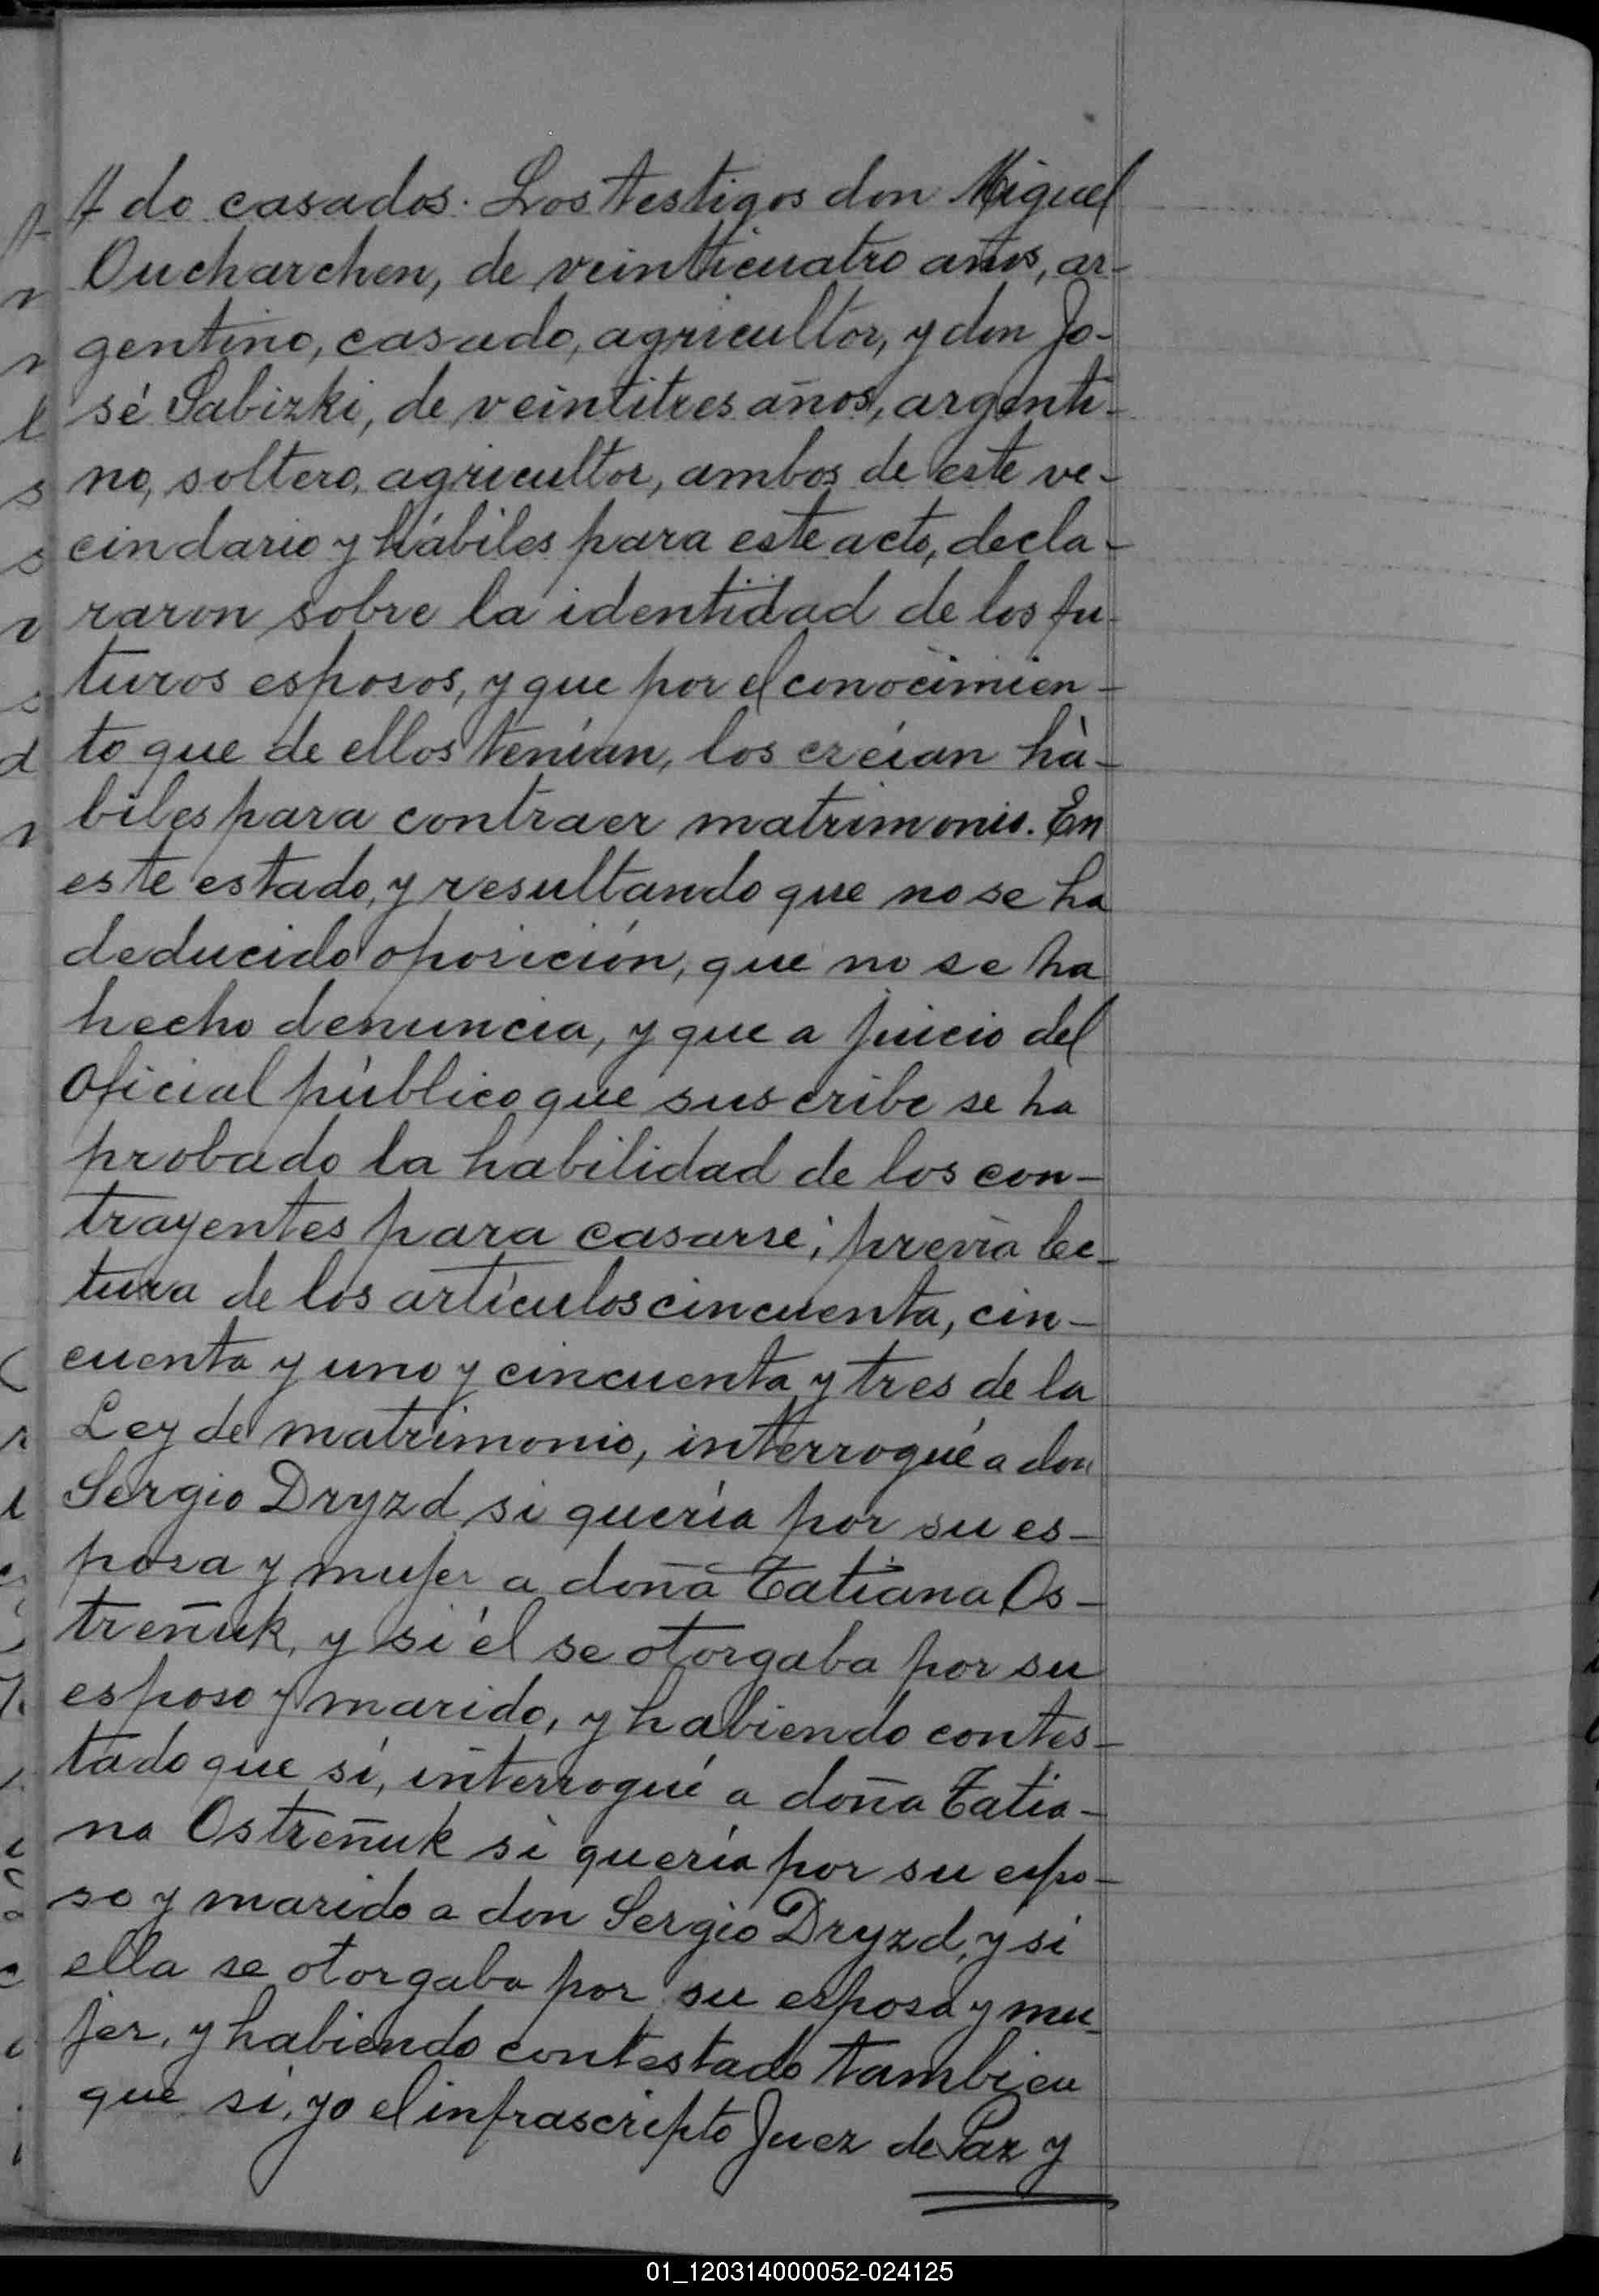 do casados. Los testigos don Miguel
Oucharchen, de veinticuatro años, ar-
gentino, casado, agricultor, y don Jo-
sé Sabizki, de veintitres años, argenti-
no, soltero, agricultor, ambos de este ve-
cindario y hábiles para este acto, decla-
raron sobre la identidad de los fu-
turos esposos, y que por el conocimien-
to que de ellos tenían, los creían há-
biles para contraer matrimonio. En
este estado, y resultando que no se ha
deducido oposición, que no se ha
hecho denuncia, y que a juicio del
Oficial público que suscribe se ha
probado la habilidad de los con-
trayentes para casarse; previa lec-
tura de los artículos cincuenta, cin-
cuenta y uno y cincuenta y tres de la
Ley de matrimonio, interrogué a don
Sergio Dryzd si quería por su es-
posa y mujer a doña Tatiana Os-
treñuk, y si él se otorgaba por su
esposo y marido, y habiendo contes-
tado que sí, interrogué a doña Tatia-
na Ostreñuk si quería por su espo-
so y marido a don Sergio Dryzd, y si
ella se otorgaba por su esposa y mu-
jer, y habiendo contestado tambien
que sí, yo el infrascripto Juez de Paz y
01_120314000052-024125